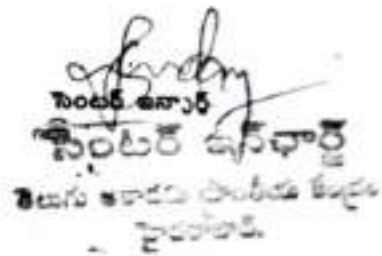 సెంటర్ ఇన్చార్జ్
సెంటర్ ఇన్‌ఛార్జ్
తెలుగు అకాడమి ప్రాంతీయ కేంద్రం
హైదరాబాద్.